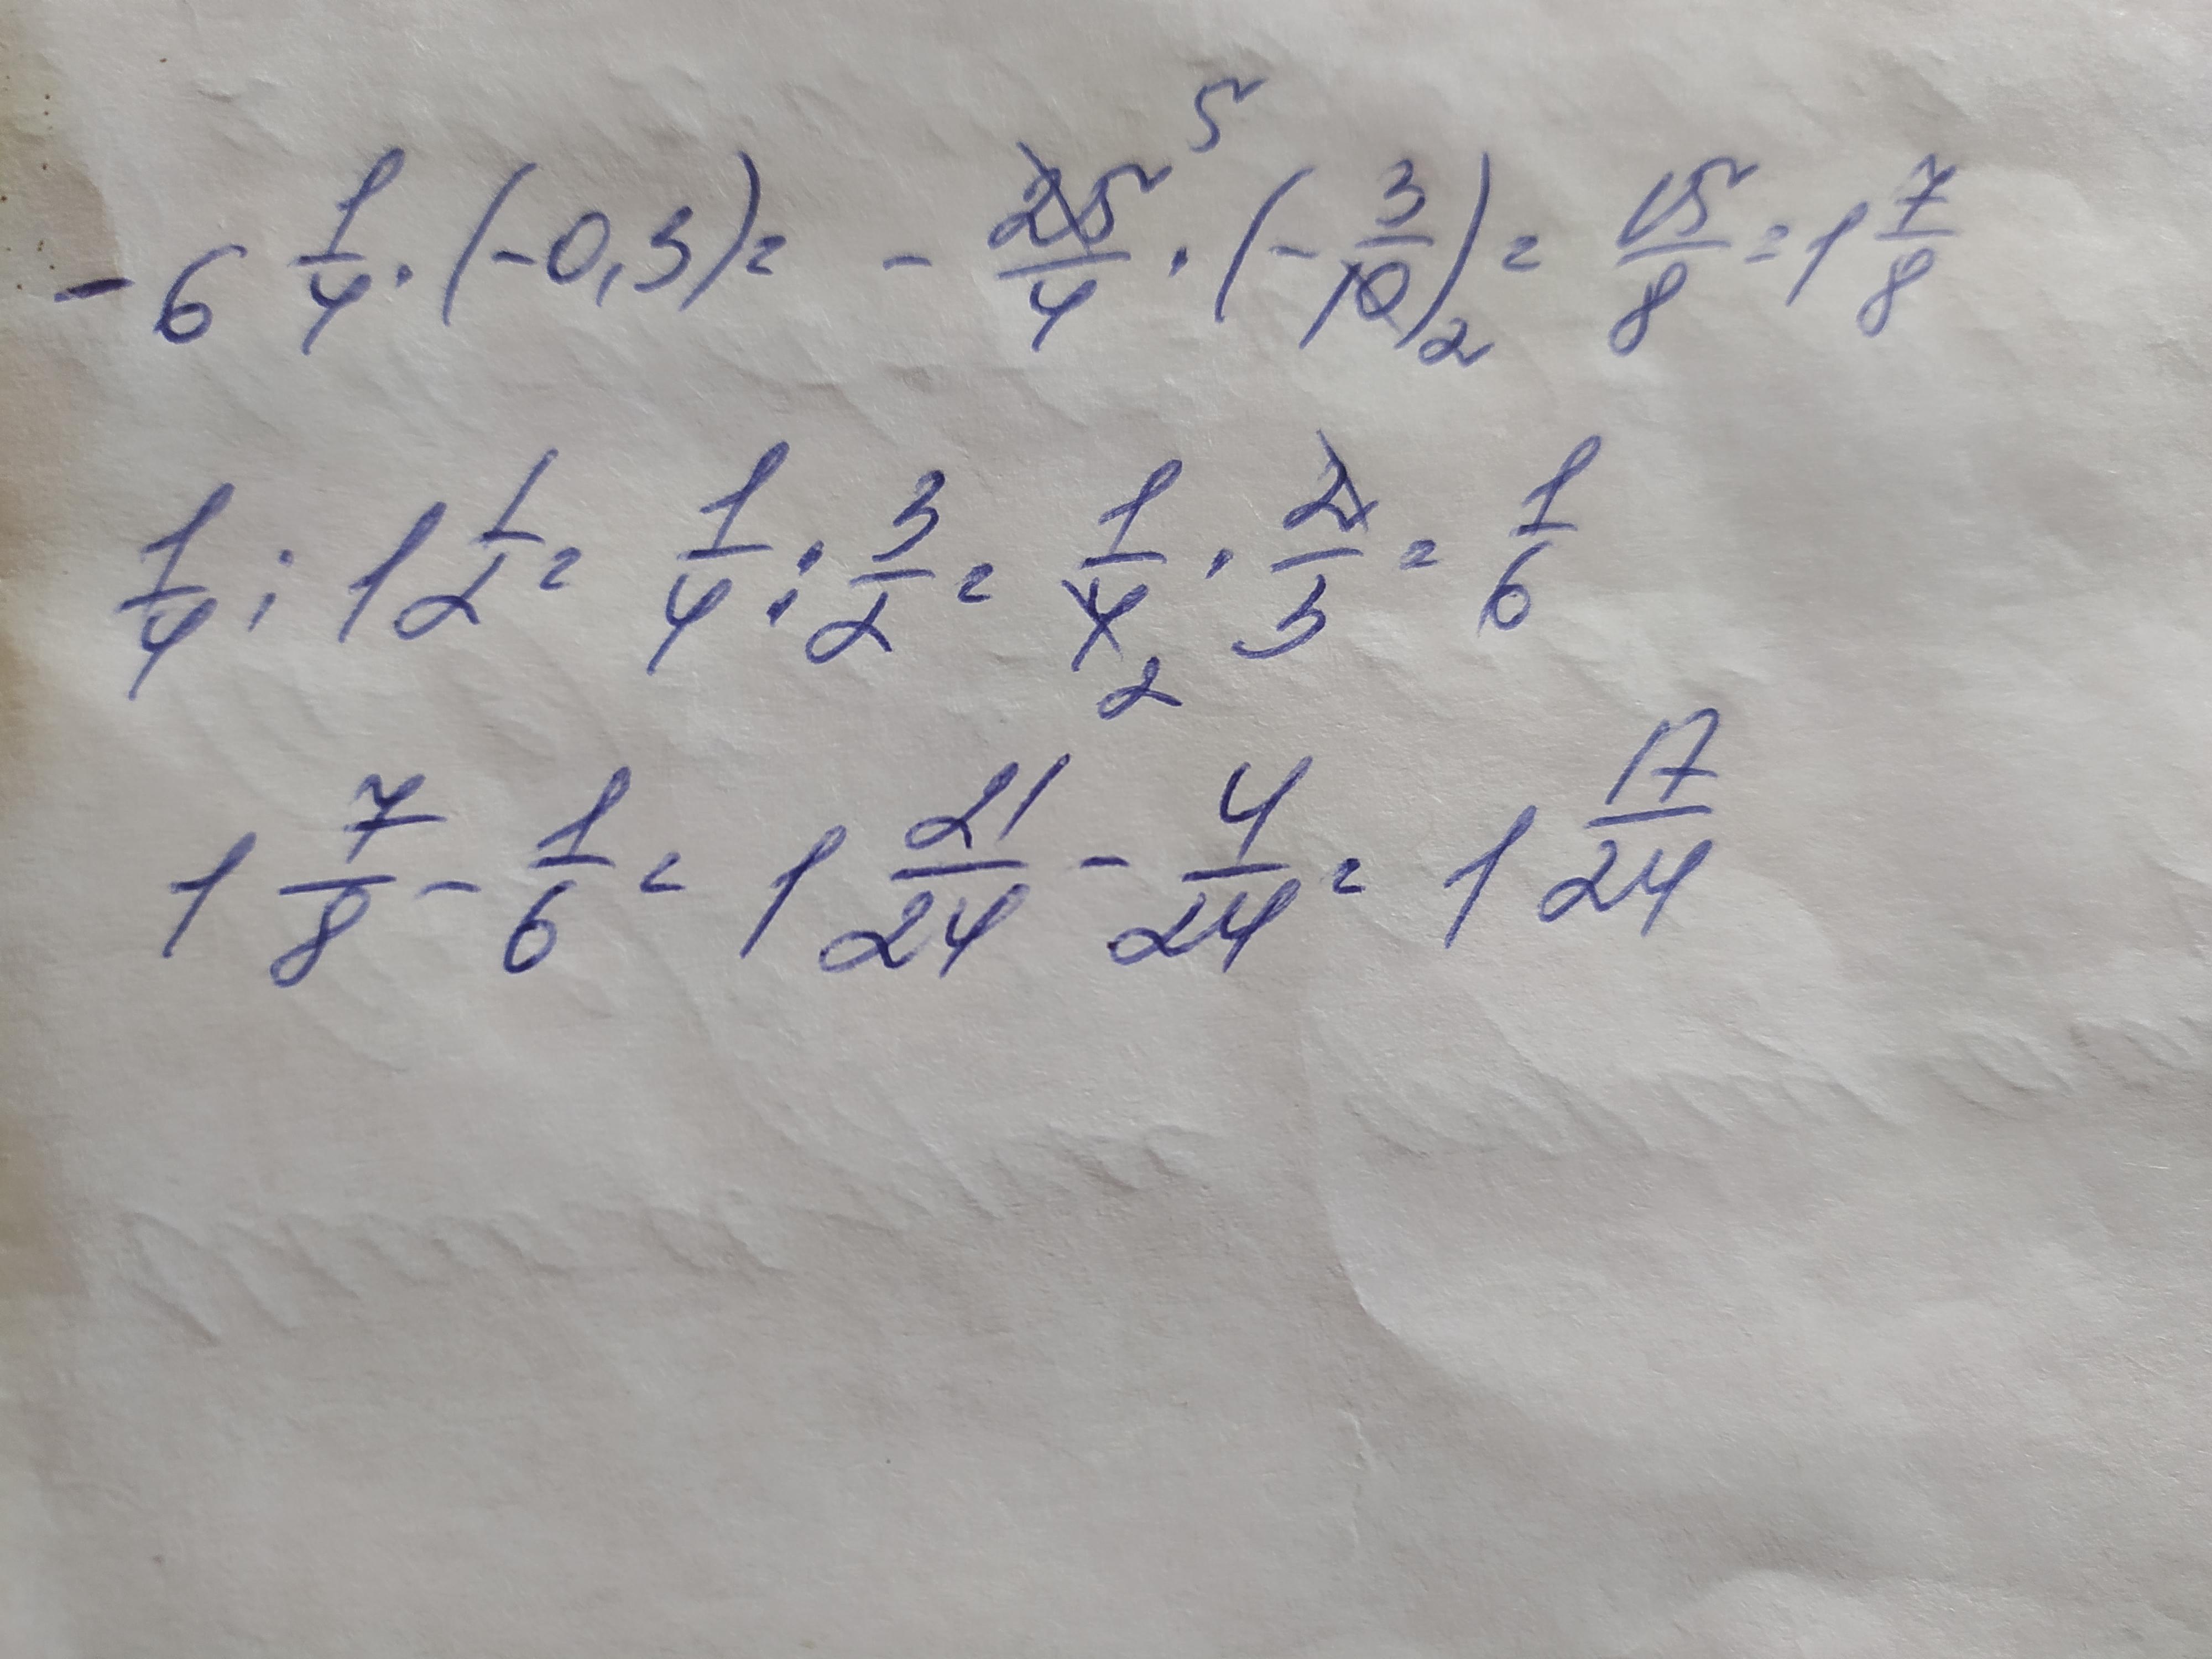 -6 1/4 · (-0,3) = - 25/4 5 · (- 3/10) 2 = 15/8 = 1 7/8
1/4 : 1 1/2 = 1/4 : 3/2 = 1/4 2 · 2/3 = 1/6
1 7/8 - 1/6 = 1 21/24 - 4/24 = 1 17/24